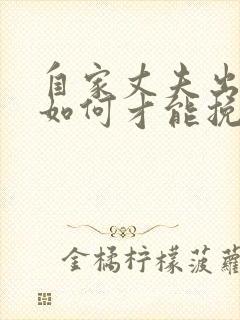 自家丈夫出
如何才能挽
金橘柠檬菠蘿